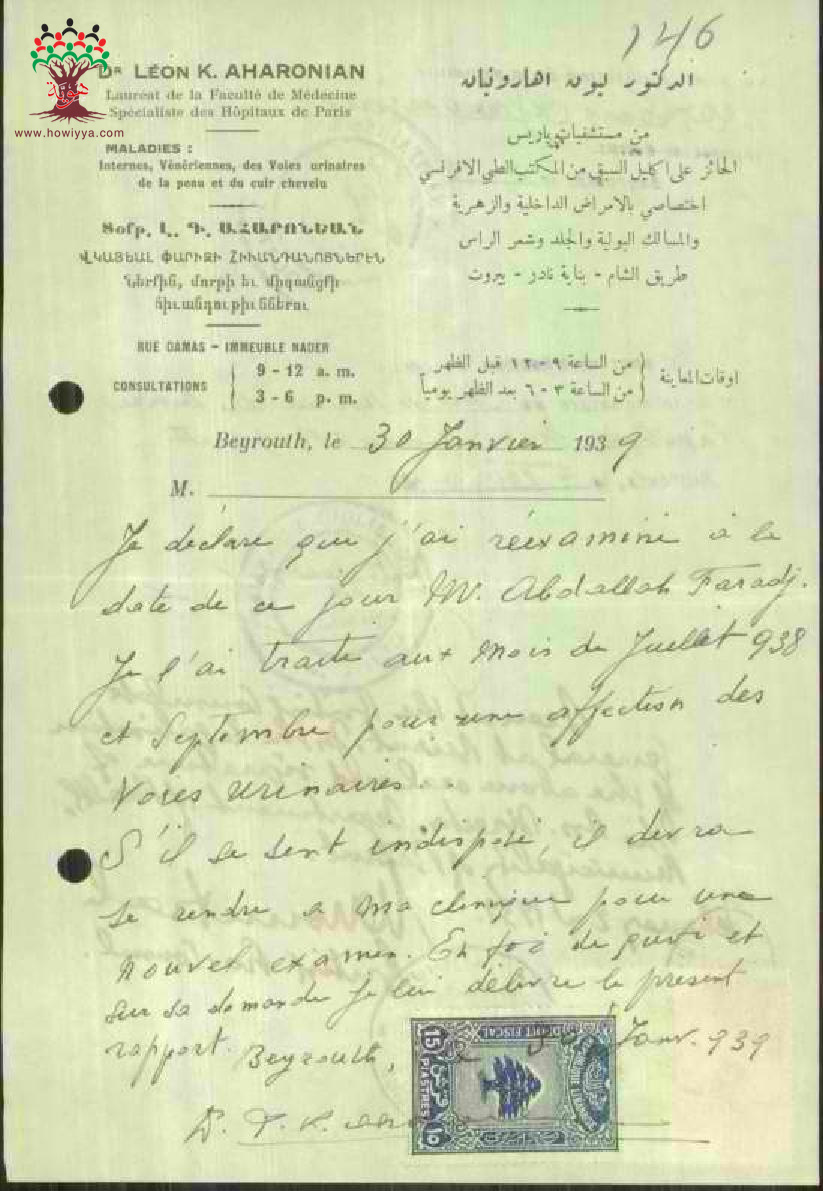 146
Dʳ LÉON K. AHARONIAN
Lauréat de la Faculté de Médecine
Spécialiste des Hôpitaux de Paris
www.howiyya.com
MALADIES :
Internes, Vénériennes, des Voies urinaires
de la peau et du cuir chevelu
Տօքթ. Լ. Գ. ԱՀԱՐՈՆԵԱՆ
ՎԿԱՅԵԱԼ ՓԱՐԻԶԻ ՀԻՒԱՆԴԱՆՈՑՆԵՐԷՆ
Ներքին, մորթի եւ միզանցքի
հիւանդութիւններու
RUE DAMAS - IMMEUBLE NADER
CONSULTATIONS
9 - 12 a. m.
3 - 6 p. m.
الدكتور ليون اهارونيان
من مستشفيات باريس
الحائز على اكليل السبق من المكتب الطبي الافرنسي
اختصاصي بالامراض الداخلية والزهرية
والمسالك البولية والجلد وشعر الراس
طريق الشام - بناية نادر - بيروت
اوقات المعاينة
من الساعة ٩-١٢ قبل الظهر
من الساعة ٣-٦ بعد الظهر يومياً
Beyrouth, le 30 Janvier 1939
M.
Je déclare que j'ai réexaminé à la
date de ce jour Mr. Abdallah Faradj.
Je l'ai traité aux mois de Juillet 938
et Septembre pour une affection des
Voies urinaires.
S'il se sent indisposé, il devra
se rendre à ma clinique pour une
nouvel examen. En foi de quoi et
sur sa demande je lui délivre le présent
rapport. Beyrouth, 30 Janv. 939
15 PIASTRES
DROIT FISCAL